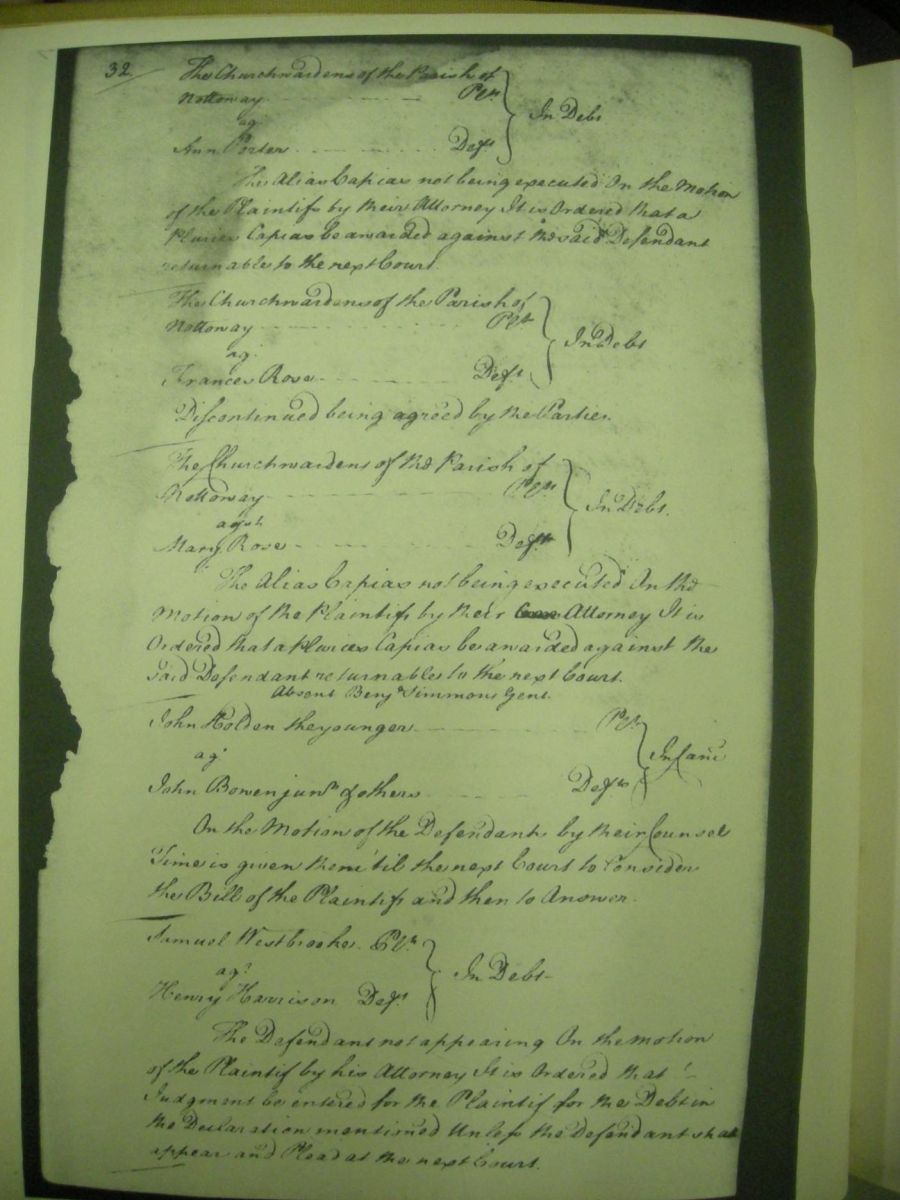 32.
The Churchwardens of the Parish of
Nottoway Plts
ag.
Ann Porter Deft
In Debt
The Alias Capias not being executed On the Motion
of the Plaintifs by their Attorney It is Ordered that a
Pluries Capias be awarded against the said Defendant
returnable to the next Court.
The Churchwardens of the Parish of
Nottoway Plts
ag.
Frances Rose Deft
In Debt
Discontinued being agreed by the Parties.
The Churchwardens of the Parish of
Nottoway Plts
agst
Mary Rose Deft
In Debt.
The Alias Capias not being executed On the
Motion of the Plaintifs by their Attorney It is
Ordered that a Pluries Capias be awarded against the
said Defendant returnable to the next Court.
Absent Benja Simmons Gent.
John Holden the younger Plt
agt
John Bowen junr & others Defts
In Canc
On the Motion of the Defendants by their Counsel
Time is given them 'til the next Court to Consider
the Bill of the Plaintif and then to Answer.
Samuel Westbrooke Plt
agt
Henry Harrison Deft
In Debt
The Defendant not appearing On the motion
of the Plaintif by his Attorney It is Ordered that
Judgment be entered for the Plaintif for the Debt in
the Declaration mentioned Unless the Defendant shall
appear and Plead at the next Court.